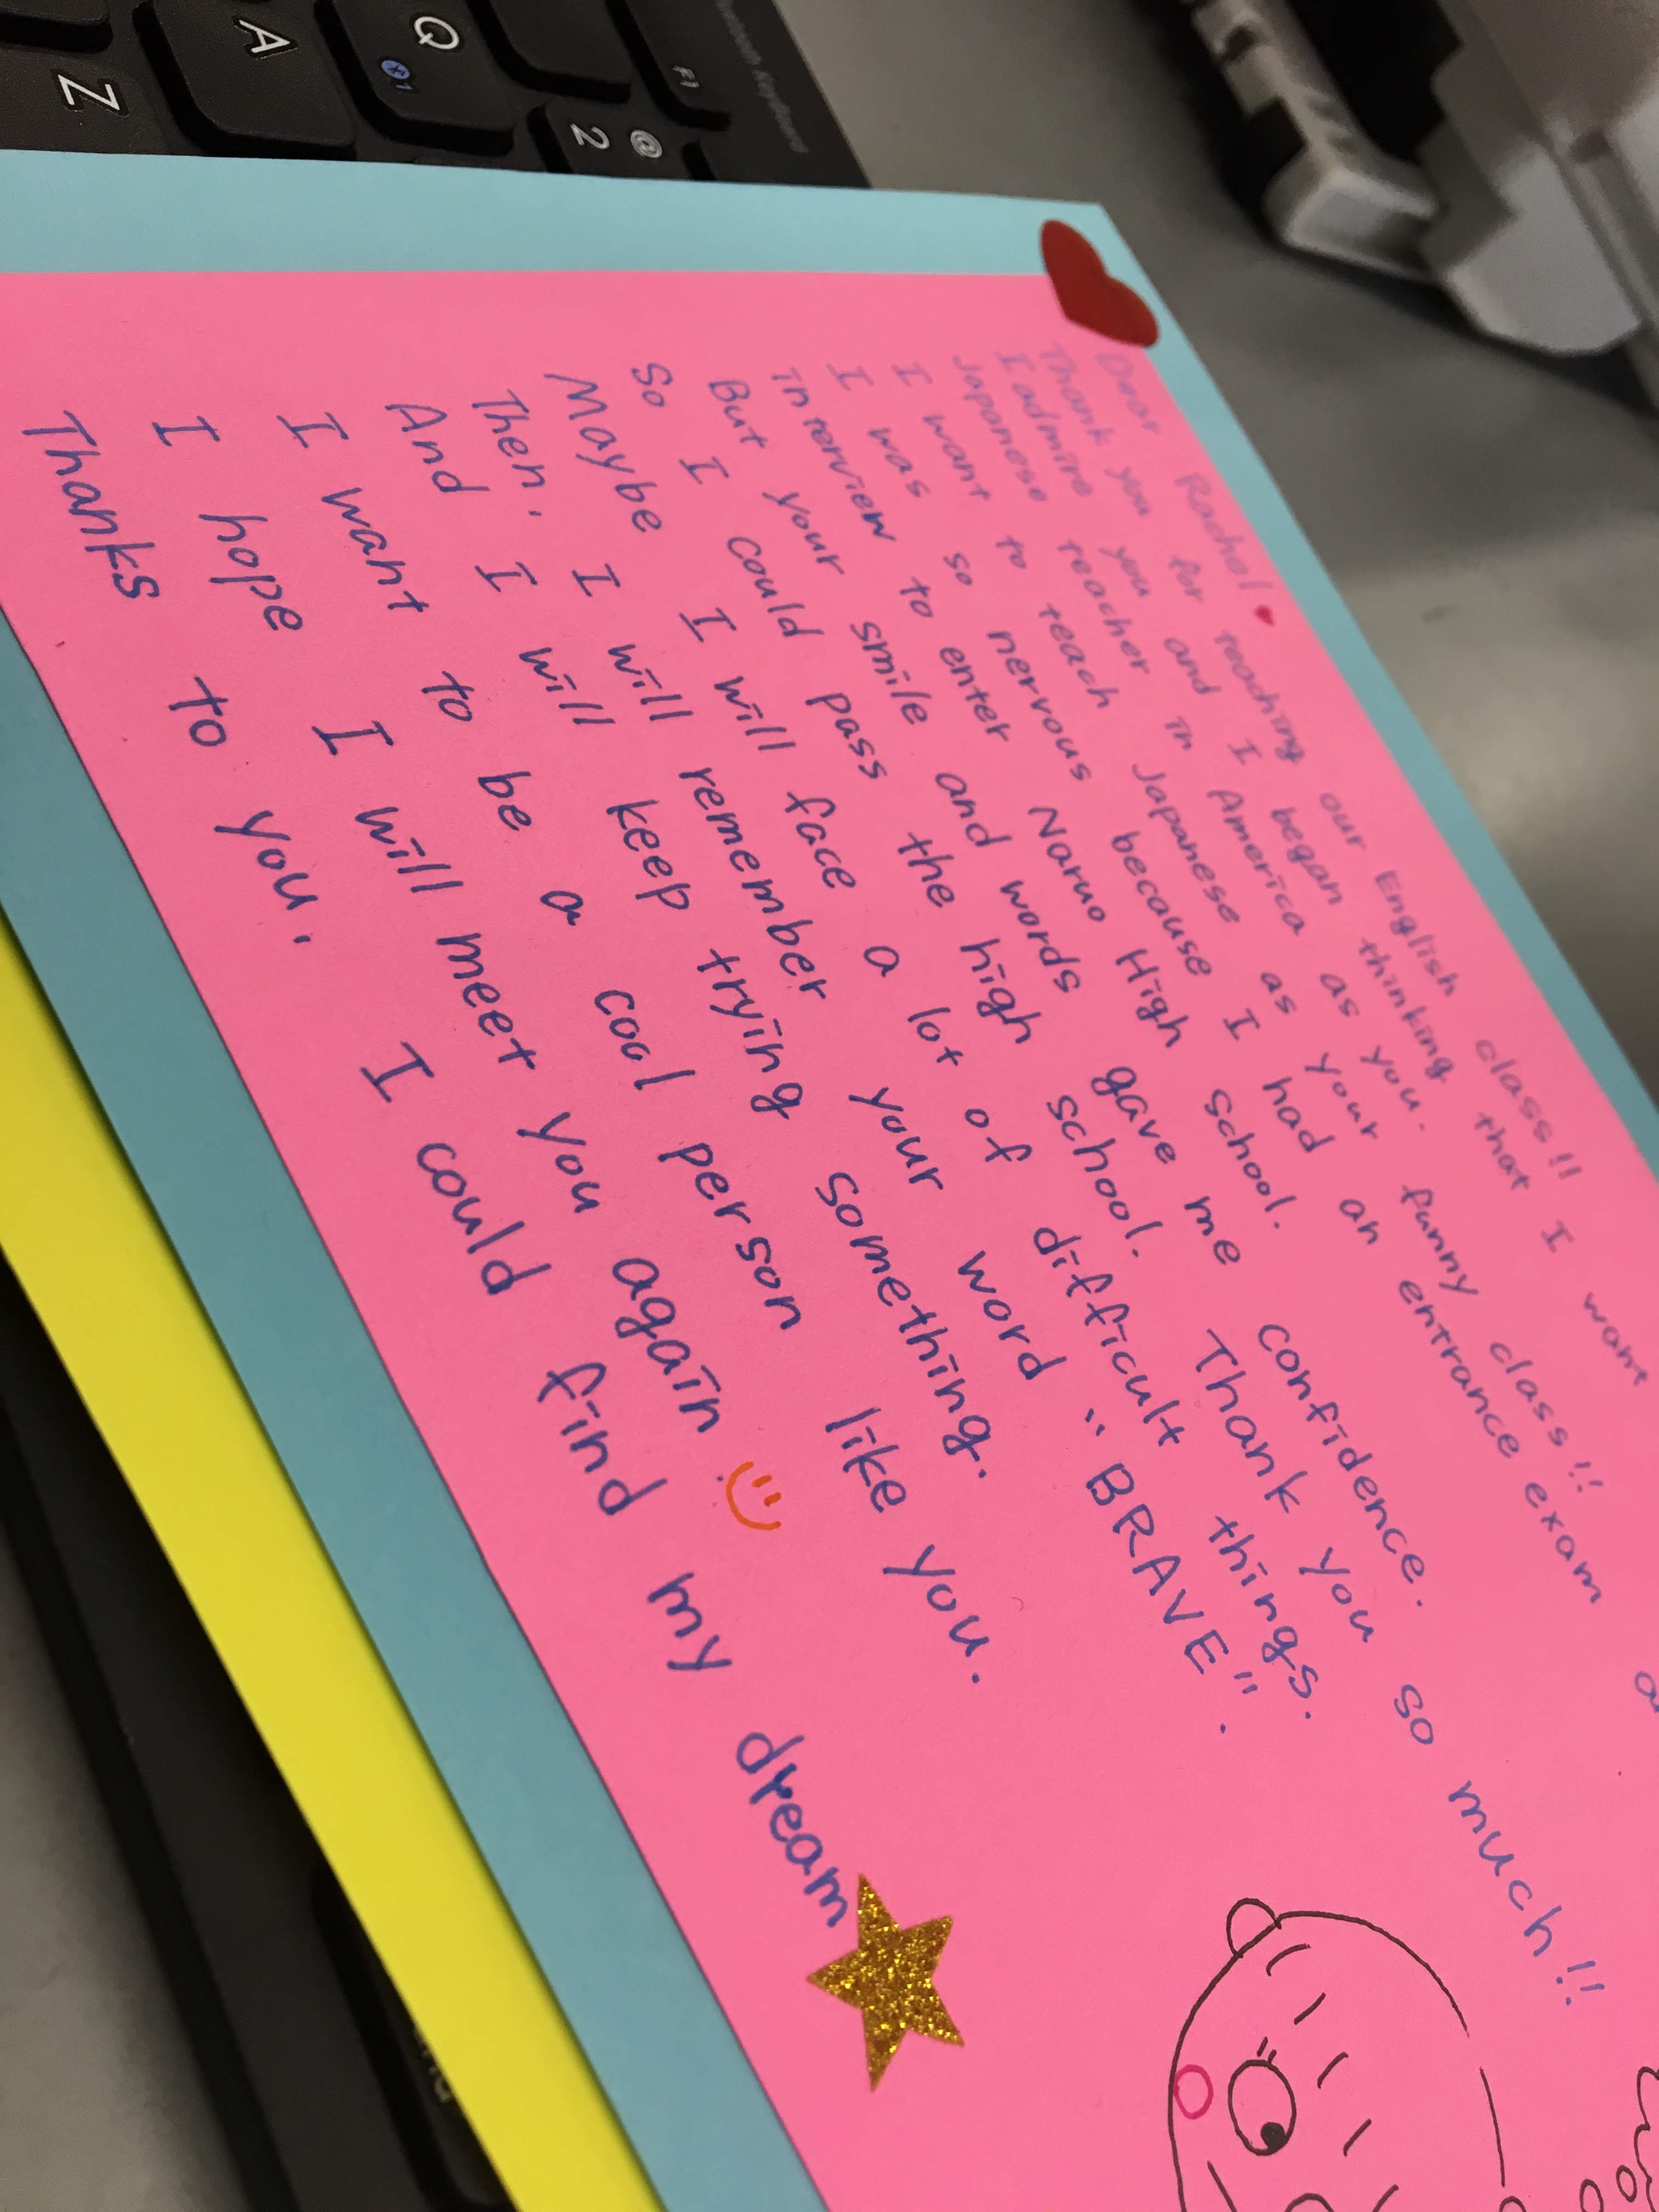 Dear Rachel
Thank you for teaching our English class!!
I admire you and I began thinking that I want
Japanese teacher in America as you.
I want to teach Japanese as your funny class!!
I was so nervous because I had an entrance exam
interview to enter Naruo High school.
But your smile and words gave me confidence.
So I could pass the high school. Thank you so much!!
Maybe I will face a lot of difficult things.
Then, I will remember your word "BRAVE".
And I will keep trying something.
I want to be a cool person like you.
I hope I will meet you again
Thanks to you, I could find my dream
F1
@
2
Q
A
Z